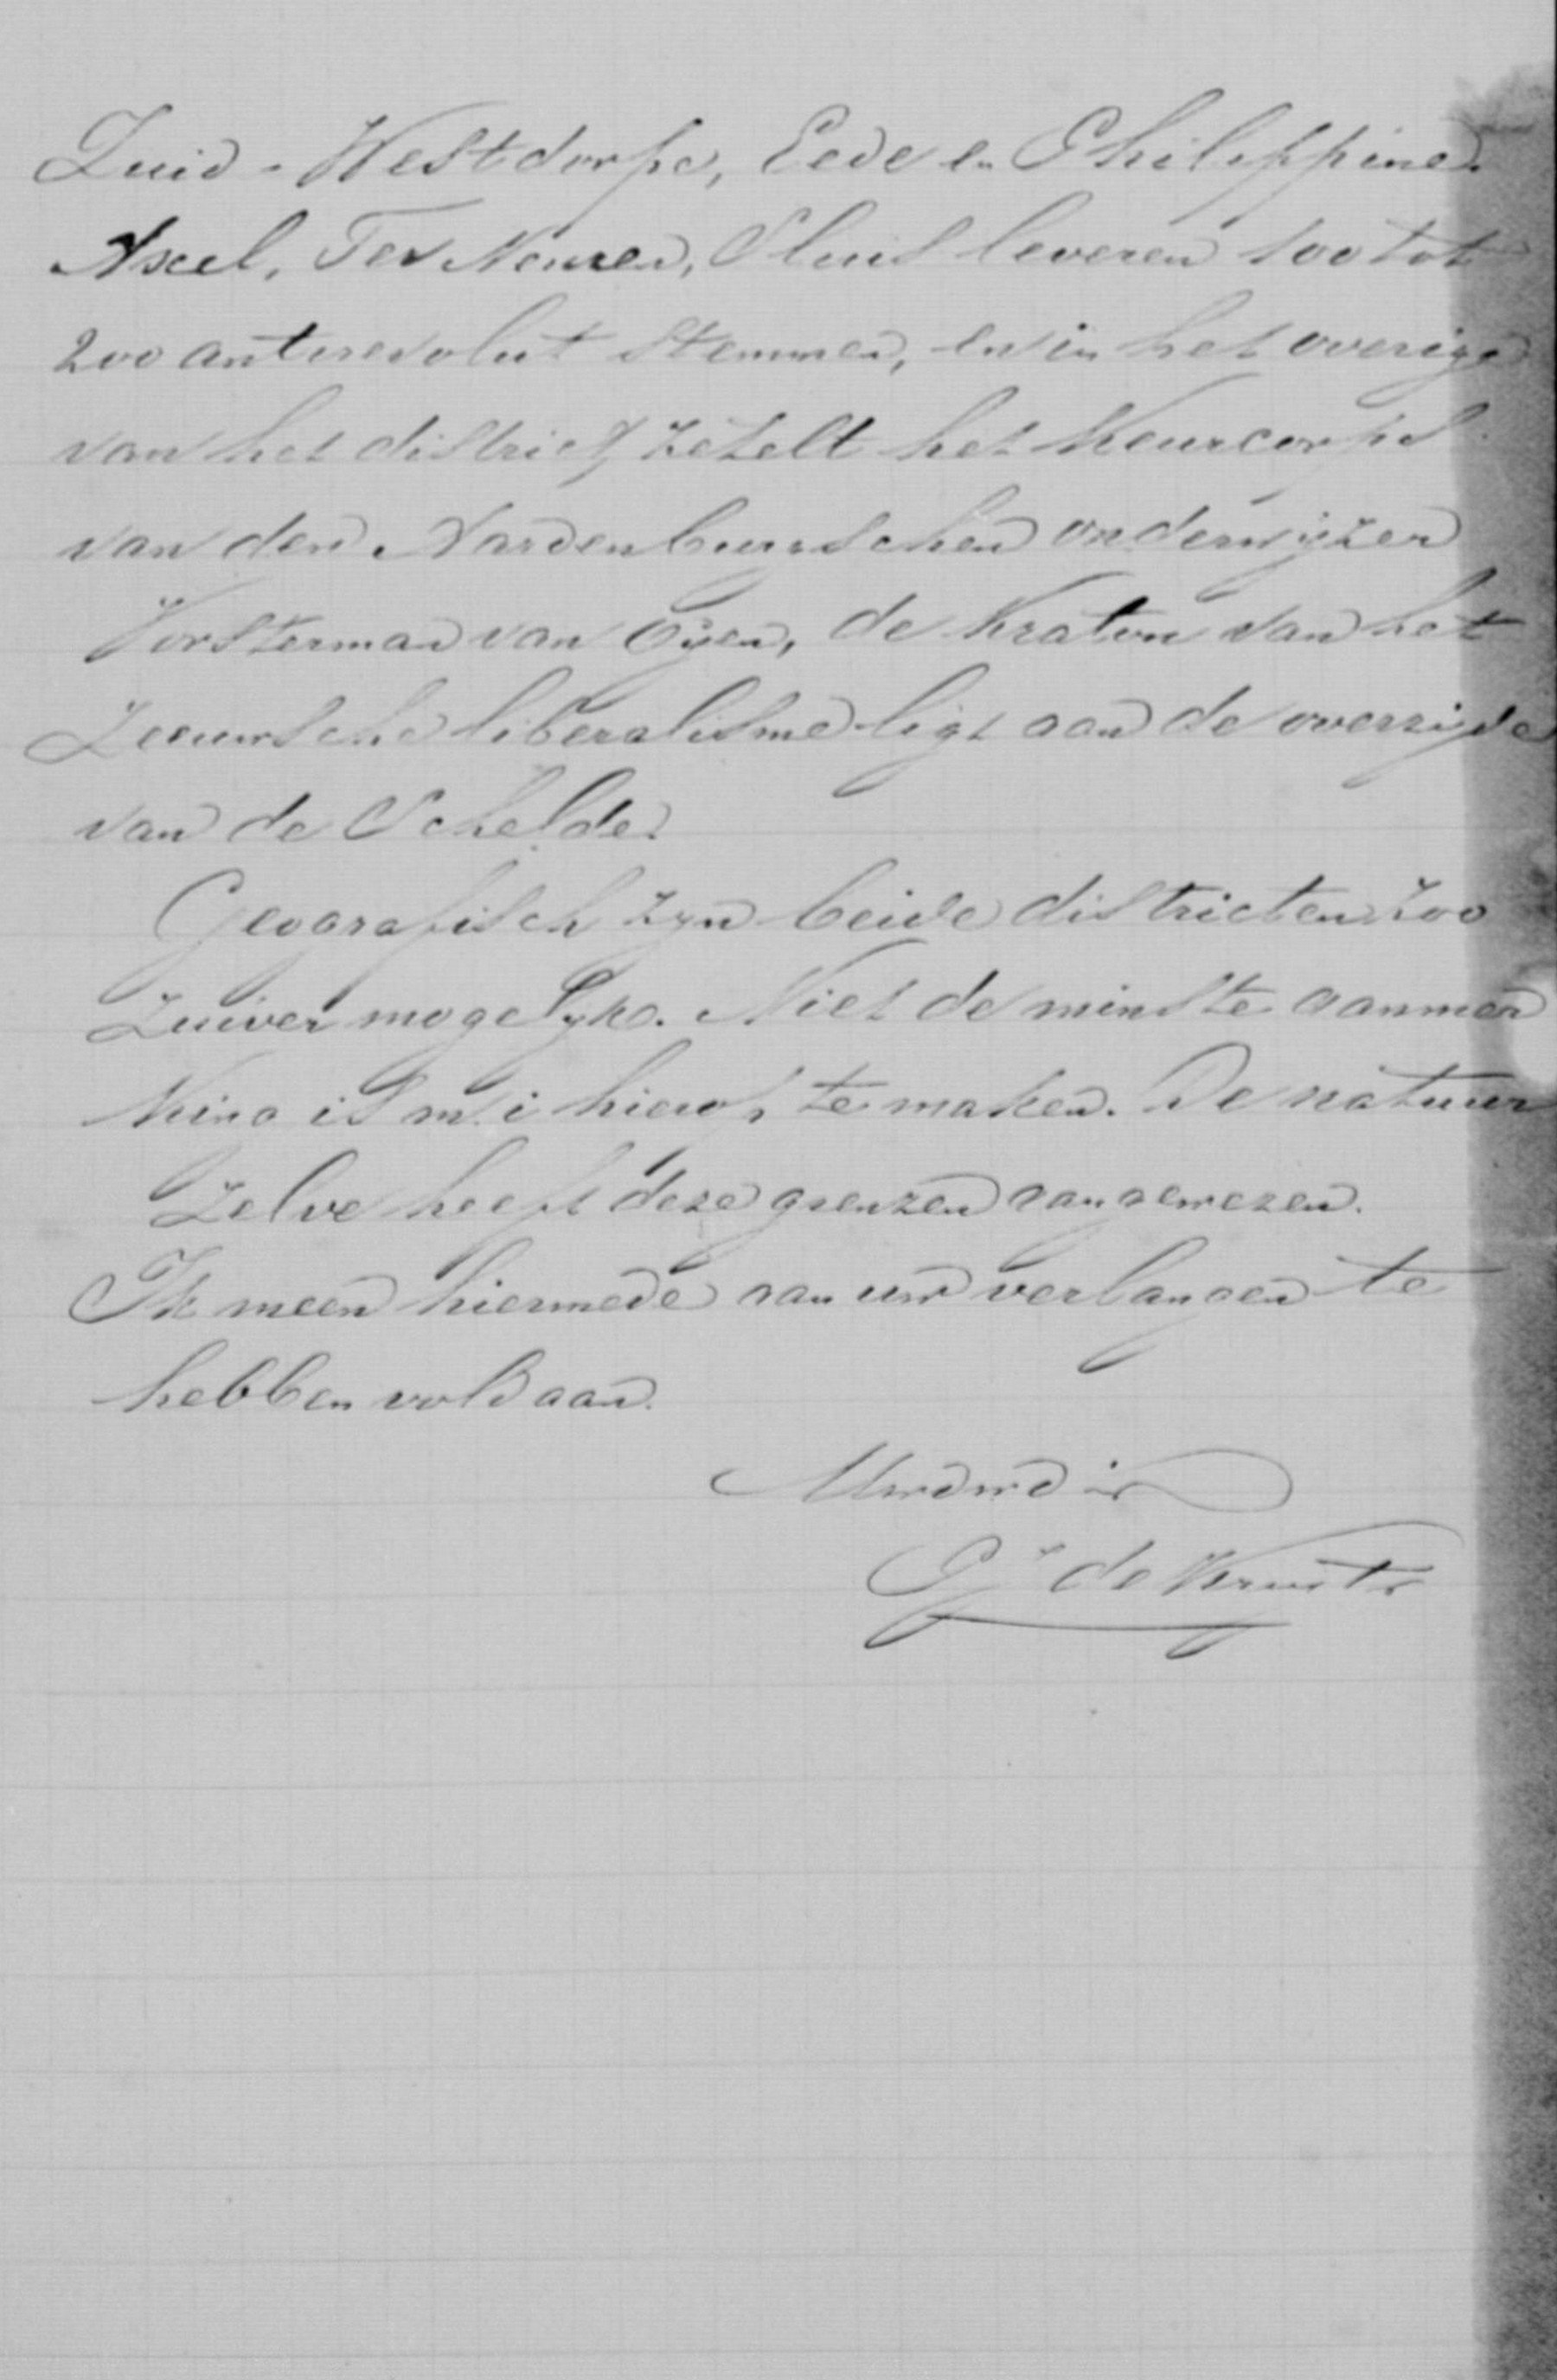 Zuid-Westdorpe, Eede en Philippine.
Axcel, Ter Neuzen, Sluis leveren 100 tot
200 antirevolut stemmen, en in het overige
van het district zetelt het Keurcorps
van den Aardenburgschen onderwijzer
Vorsterman van Oijen, de Kraton van het
Zeeuwsche liberalisme ligt aan de overzijde
van de Schelde.
Geografisch zijn beide districten zoo
zuiver mogelijk. Niet de minste aanmer
king is m.i hierop te maken. De natuur
zelve heeft deze grenzen aangewezen.
Ik meen hiermede aan uw verlangen te
hebben voldaan.
Uwdwdr
de